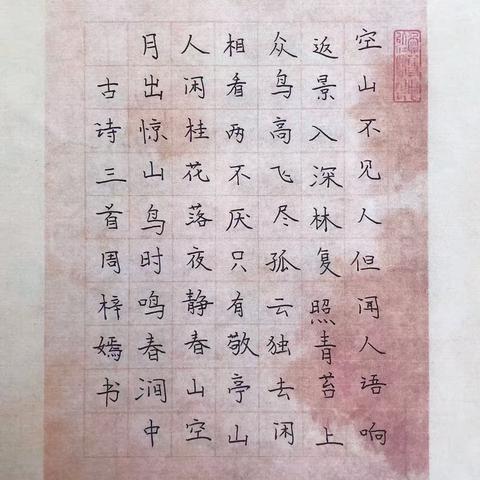 空山不见人但闻人语响
返景入深林复照青苔上
众鸟高飞尽孤云独去闲
相看两不厌只有敬亭山
人闲桂花落夜静春山空
月出惊山鸟时鸣春涧中
古诗三首周梓嫣书